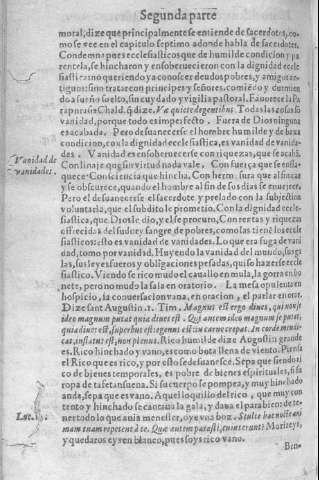 Segunda parte
moral; dize que principalmente se entiende de sacerdotes, co-
mo se vee en el capitulo septimo adonde habla de sacerdotes.
Condemna pues ecclesiasticos que de humilde condicion y pa
rentela, se hincharon y ensoberuecieron con la dignidad eccle
siastica no queriendo ya conoscer deudos pobres, y amigos an-
tiguos: sino tratar con principes y señores, comiēdo y durmien
do a sueño suelto, sin cuydado y vigilia pastoral. Fauorece la Pa
raphrasis Chald. q̃ dize. Væ quiete degentibus. Todas las cosas sō
vanidad, porque todo es imperfecto. Fuera de Dios ninguna
es acabada. Pero desuanecerse el hombre humilde y de baxa
condicion, con la dignidad ecclesiastica, es vanidad de vanida-
des. Vanidad es ensoberuecerse con riquezas, que se acabā.
Con linaje que sin virtud no vale. Con fuerça que se enfla-
quece. Con sciencia que hincha. Con hermosura que al fin caę
y se obscurece, quando el hombre al fin de sus dias se enuejece.
Pero el desuanecerse el sacerdote y prelado con la subjection
voluntaria, que el subdito le prometio. Con la dignidad eccle-
siastica, que Dios le dio, y el se procuro, Con rentas y riquezas
offrecidas del sudor y sangre de pobres, como las tienē los eccle
siasticos: esto es vanidad de vanidades. Lo que era fuga de vani
dad, tomo por vanidad. Huyendo la vanidad del mundo, sus ga
las, sus leyes fueros y obligaciones pesadas, quiso hazerse eccle
siastico. Viendose rico mudo el cauallo en mula, la gorra en bo
nete, pero no mudo la sala en oratorio. La mesa opulenta en
hospicio, la conuersacion vana, en oracion, el parlar en orar.
Dize sant Augustin. 1. Tim. Magnus est ergo diues, qui non se
ideo magnum putat quia diues est. Qui autem ideo magnum se putat,
quia diues est, superbus est: egenus est: in carne crepat. In corde mendi-
cat, inflatus est, non plenus. Rico humilde dize Augustin grande
es. Rico hinchado y vano, es como bota llena de viento. Piensa
el Rico que es rico, y por esto se desuanesce. Sepa que siendo ri
co de bienes temporales, es pobre de bienes espirituales, si fa
ropa de tafetan suena. Si su cuerpo se pompea, y muy hinchado
anda, sepa que es vano. Aquello quillo del rico, que muy con
tento y hinchado se cantina la gala, y daua el parabien: de te-
ner todo lo que auia menester, oye vna boz. Stulte hac nocte ani
mam tuam repetent à te. Quæ autem parasti, cuius erunt? Morireys,
y quedaros eys en blanco, pues soys rico vano.
Bien-
Vanidad de
vanidades.
Luc. 12.